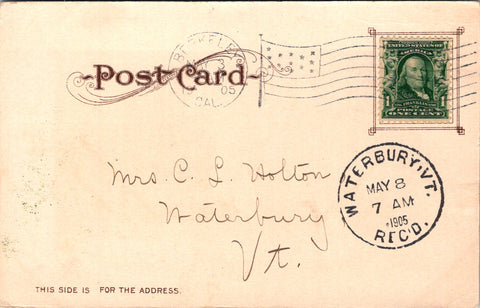 Post Card
BERKELEY
3
05
CAL.
UNITED STATES OF AMERICA
1 1
FRANKLIN
POSTAGE
ONE CENT
Mrs. C. L. Holton
Waterbury
Vt.
WATERBURY, VT.
MAY 8
7 AM
1905
REC'D.
THIS SIDE IS FOR THE ADDRESS.